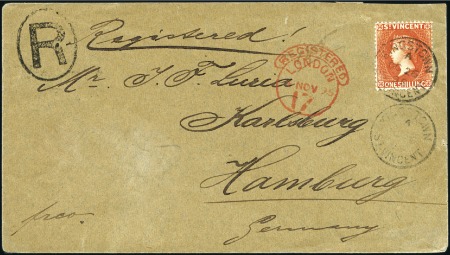 R
Registered!
ST VINCENT
ONE SHILLING
REGISTERED
LONDON
NOV
17
KINGSTOWN
ST VINCENT
Mr. J. F. Luria
Karlsburg
Hamburg
Germany